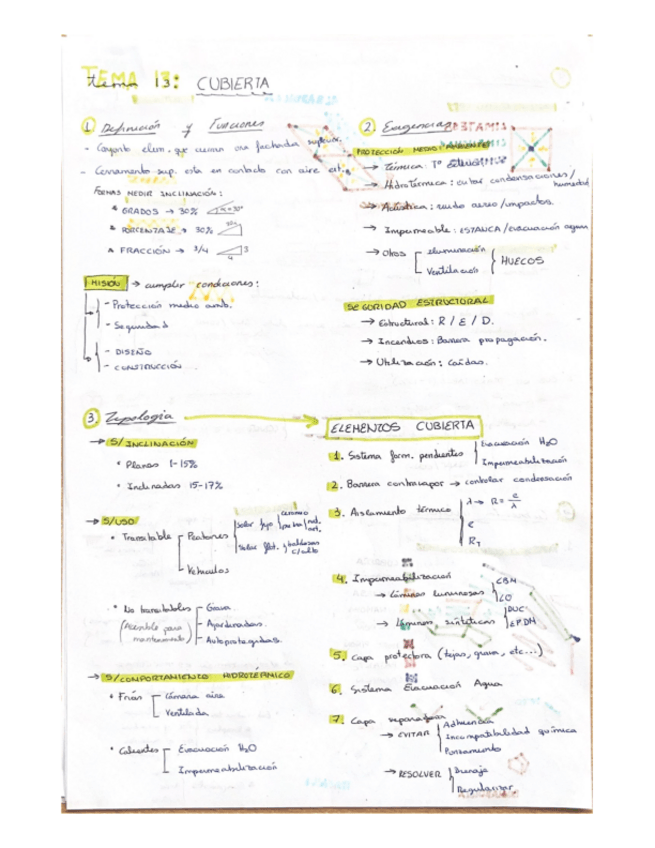 TEMA 13: CUBIERTA
1. Definición y Funciones
- Conjunto elem. que cierran una fachada superior.
- Cerramiento sup. está en contacto con aire ext.
FORMAS MEDIR INCLINACIÓN:
GRADOS → 30%
PORCENTAJE → 30%
FRACCIÓN → 3/4 3
4
MISIÓN → cumplir condiciones:
- Protección medio amb.
- Seguridad
- DISEÑO
- CONSTRUCCIÓN
2. Exigencias
PROTECCIÓN MEDIO AMBIENTE
→ Térmica: Tª
→ Hidrotérmica: evitar condensaciones/humedad
→ Acústica: ruido aereo/impactos.
→ Impermeable: ESTANCA/evacuación agua
→ Otros
iluminación
Ventilación
HUECOS
SEGURIDAD ESTRUCTURAL
→ Estructural: R / E / D.
→ Incendios: Barrera propagación.
→ Utilización: Caídas.
3. Tipología
→ S/INCLINACIÓN
• Planas 1-15%
• Inclinadas 15-17%
→ S/USO
• Transitable
Peatones
Solar fijo
cerámico
Solar flot.
baldosas
Vehículos
• No transitables
(Accesible para mantenimiento)
- Grava.
- Ajardinadas.
- Autoprotegidas.
→ S/COMPORTAMIENTO HIDROTÉRMICO
• Frías
Cámara aire
Ventilada
• Calientes
Evacuación H₂O
Impermeabilización
ELEMENTOS CUBIERTA
1. Sistema form. pendientes
Evacuación H₂O
Impermeabilización
2. Barrera contravapor → controlar condensación
3. Aislamiento térmico
λ → R = e/λ
e
R_T
4. Impermeabilización
→ Láminas bituminosas
LBM
LO
→ Láminas sintéticas
PVC
EPDM
5. Capa protectora (tejas, grava, etc...)
6. Sistema Evacuación Agua
7. Capa separadora
→ EVITAR
Adherencia
Incompatibilidad química
Punzamiento
→ RESOLVER
Drenaje
Regularizar